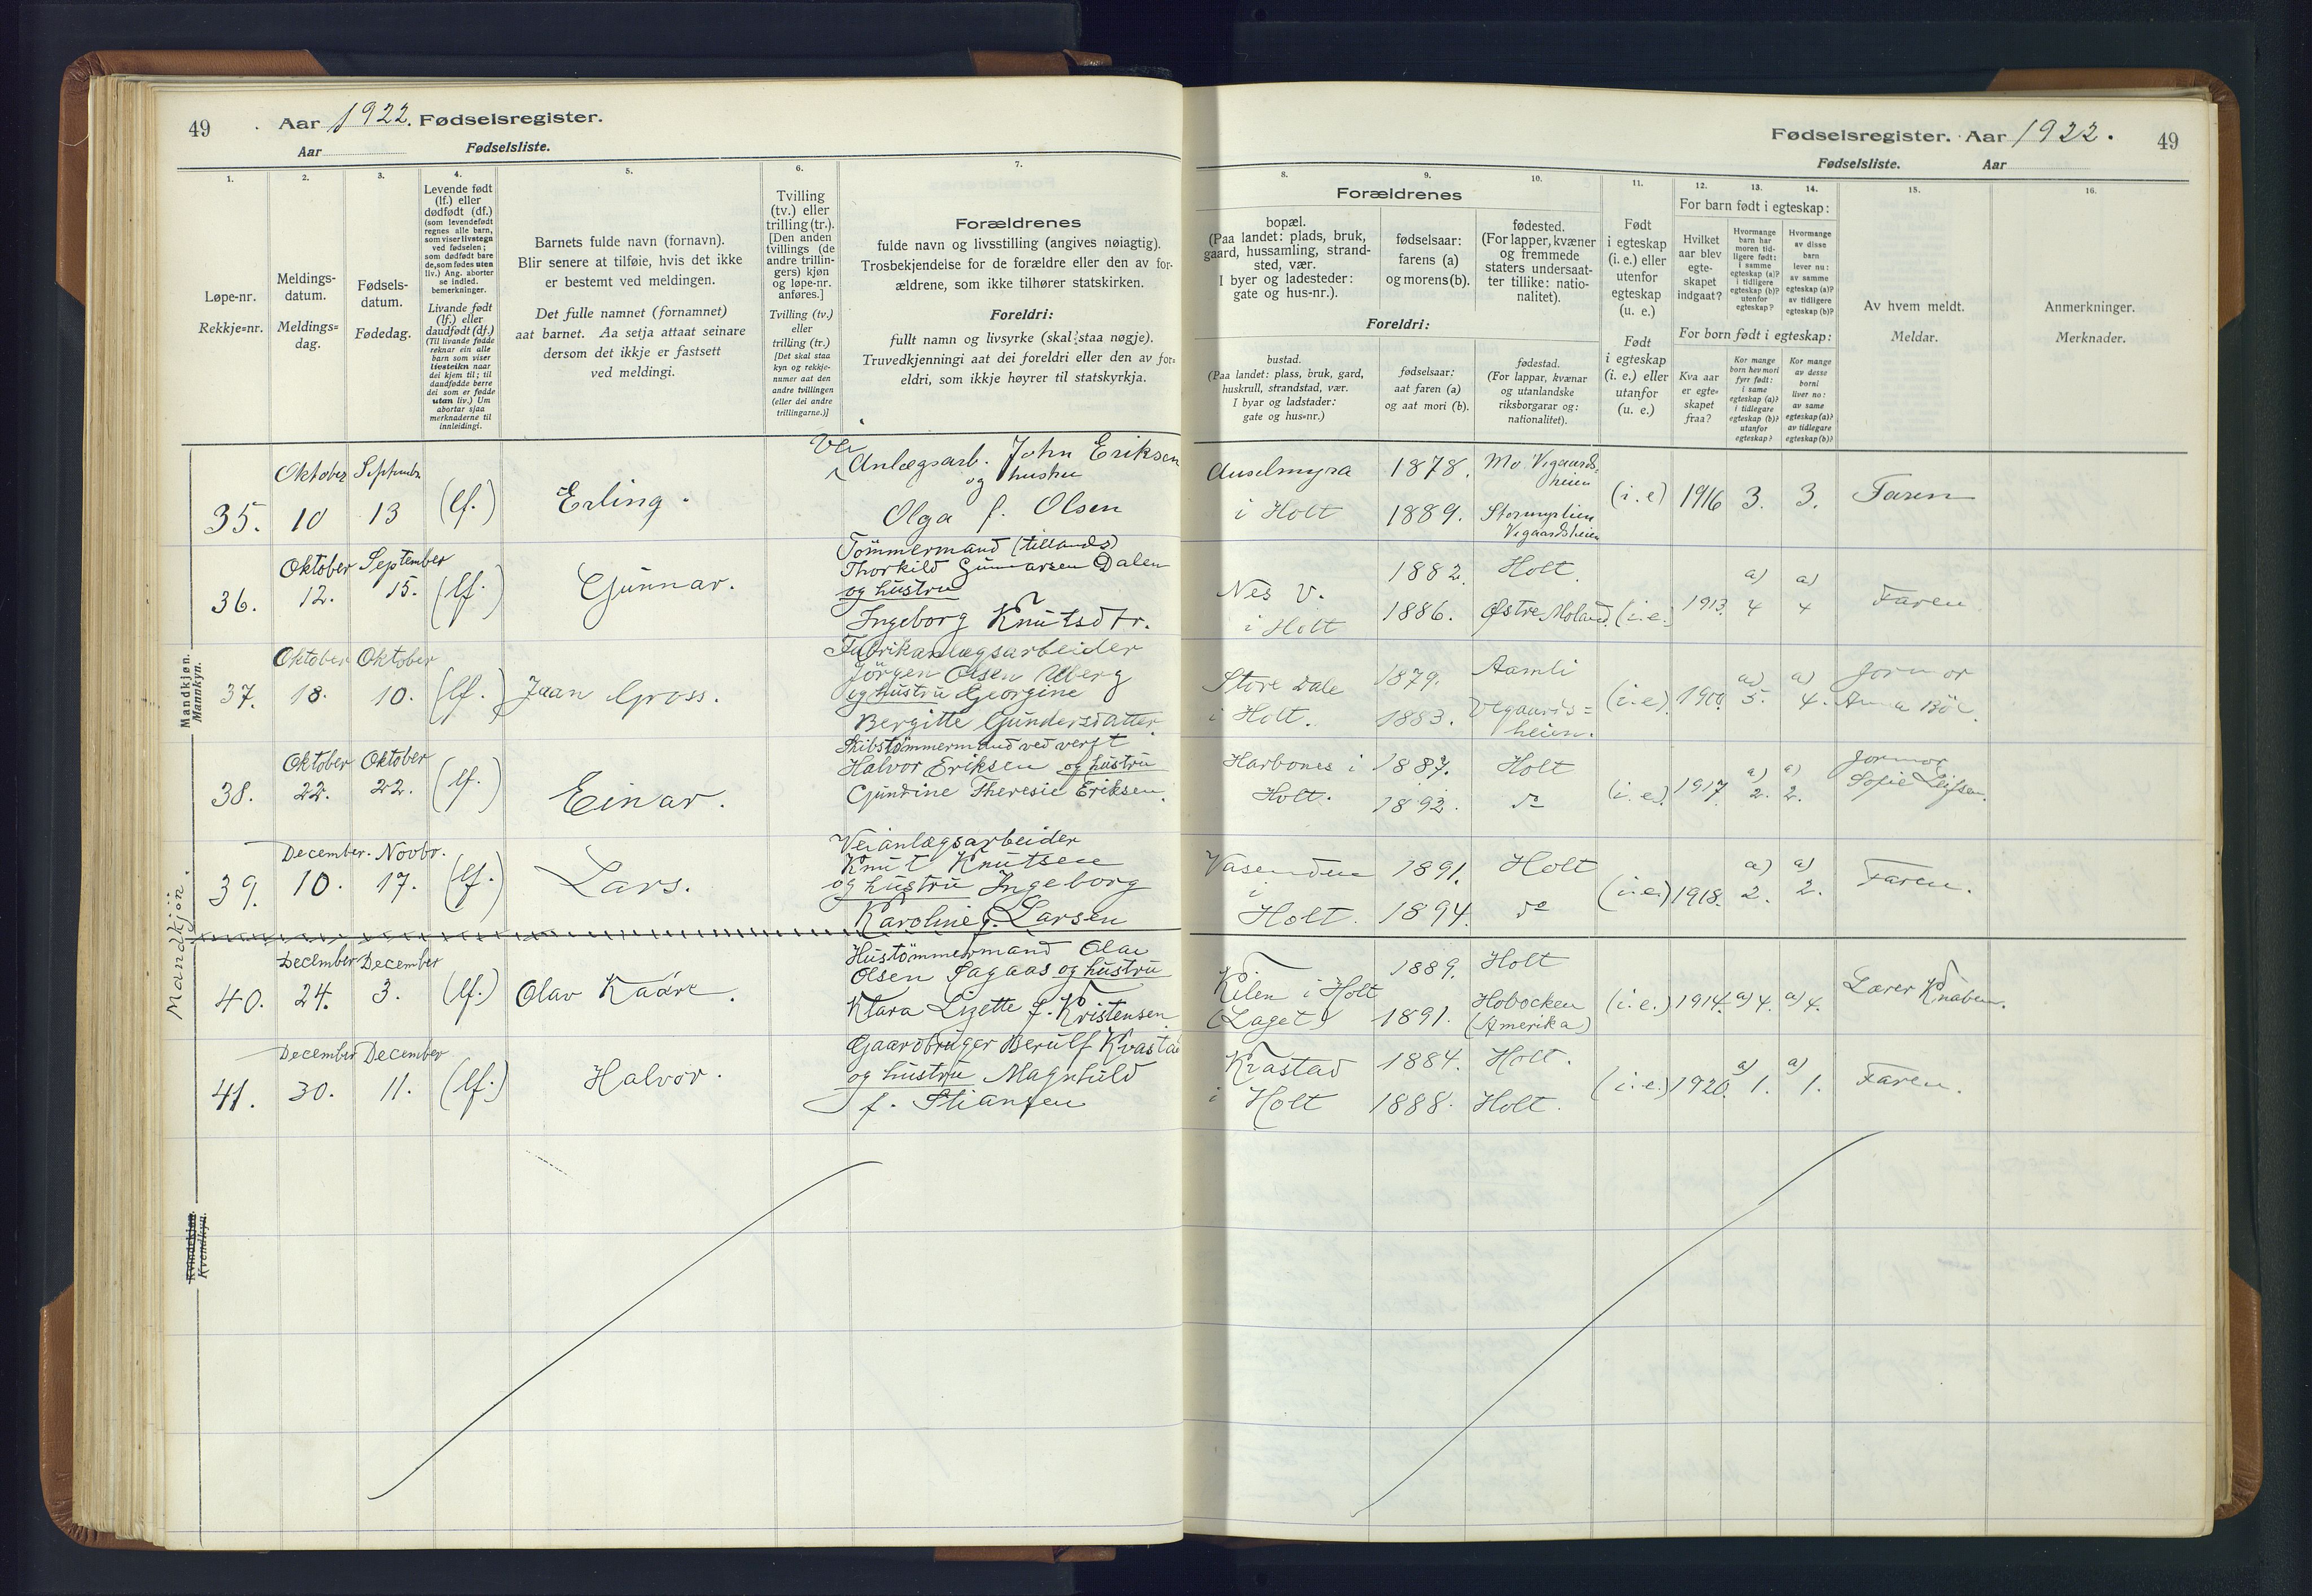 49
Aar 1922. Fødselsregister.
Aar
Fødselsliste.
1.
Løpe-nr.
Rekkje=nr.
2.
Meldings-
datum.
Meldings=
dag.
3.
Fødsels-
datum.
Fødedag.
4.
Levende født
(lf.) eller
dødfødt (df.)
(som levendefødt
regnes alle barn,
som viser livstegn
ved fødselen;
som dødfødt bare
de, som fødes uten
liv.) Ang. aborter
se indled.
bemerkninger.
Livande født
(lf.) eller
daudfødt (df.)
(Til livande fødde
reknar ein alle
barn som viser
livsteikn naar
dei kjem til; til
daudfødde berre
dei som er fødde
utan liv.) Um
abortar sjaa
merknaderne til
innleidingi.
5.
Barnets fulde navn (fornavn).
Blir senere at tilføie, hvis det ikke
er bestemt ved meldingen.
Det fulle namnet (fornamnet)
aat barnet. Aa setja attaat seinare
dersom det ikkje er fastsett
ved meldingi.
6.
Tvilling
(tv.) eller
trilling (tr.).
[Den anden
tvillings (de
andre trillin-
gers) kjøn
og løpe-nr.
anføres.]
Tvilling (tv.)
eller
trilling (tr.)
[Det skal staa
kyn og rekkje-
numer aat den
andre tvillingen
(eller dei andre
trillingarne.)]
7.
Forældrenes
fulde navn og livsstilling (angives nøiagtig).
Trosbekjendelse for de forældre eller den av for-
ældrene, som ikke tilhører statskirken.
Foreldri:
fullt namn og livsyrke (skal staa nøgje).
Truvedkjenningi aat dei foreldri eller den av for=
eldri, som ikkje høyrer til statskyrkja.
Mandkjøn.
Mannkyn.
35.
Oktober
10
Septembr
13
(lf.)
Erling.
Vei
Anlægsarb. John Eriksen
og hustru
Olga f. Olsen
36.
Oktober
12.
September
15.
(lf.)
Gunnar.
Tømmermand (tillands)
Thorkild Gunnarsen Dalen
og hustru
Ingeborg Knutsdtr.
37.
Oktober
18.
Oktober
10.
(lf.)
Johan Gross.
Fabrikanlægsarbeider
Jörgen Olsen Uberg
og hustru Georgine
Bergitte Gundersdatter.
38.
Oktober
22.
Oktober
22.
(lf.)
Einar.
Skibstömmermand ved verft
Halvor Eriksen og hustru
Gundine Theresie Eriksen.
39.
December.
10.
Novbr.
17.
(lf.)
Lars.
Veianlægsarbeider
Knut Knutsen
og hustru Ingeborg
Karoline f. Larsen
Mandkjön.
40.
December
24.
December
3.
(lf.)
Olav Kaare.
Hustömmermand Olav
Olsen Sagaas og hustru
Klara Lizette f. Kristensen
41.
December
30.
December
11.
(lf.)
Halvor.
Gaardbruger Berulf Kvastad
og hustru Magnhild
f. Stiansen
Kvindekjøn.
Kvendkyn.
Fødselsregister. Aar 1922.
49
Fødselsliste.
Aar
8.
Forældrenes
bopæl.
(Paa landet: plads, bruk,
gaard, hussamling, strand-
sted, vær.
I byer og ladesteder:
gate og hus-nr.).
9.
fødselsaar:
farens (a)
og morens (b).
10.
fødested.
(For lapper, kvæner
og fremmede
staters undersaat-
ter tillike: natio-
nalitet).
Foreldri:
bustad.
(Paa landet: plass, bruk, gard,
huskrull, strandstad, vær.
I byar og ladstader:
gate og hus=nr.)
fødselsaar:
aat faren (a)
og aat mori (b).
fødestad.
(For lappar, kvænar
og utanlandske
riksborgarar og:
nationalitet).
11.
Født
i egteskap
(i. e.) eller
utenfor
egteskap
(u. e.)
Født
i egteskap
(i. e.) eller
utanfor
(u. e.)
12. 13. 14.
For barn født i egteskap:
Hvilket
aar blev
egte-
skapet
indgaat?
Hvormange
barn har
moren tid-
ligere født:
i samme
egteskap (a)?
i tidligere
egteskap (b)?
utenfor
egteskap?
Hvormange
av disse
barn
lever nu:
av samme
egteskap (a)?
av tidligere
egteskap (b)?
For born født i egteskap:
Kva aar
er egte=
skapet
fraa?
Kor mange
born hev mori
fyrr født:
i same
egteskap (a)?
i tidlegare
egteskap (b)?
utanfor
egteskap?
Kor mange
av desse
borni
liver no:
av same
egteskap (a)?
av tidlegare
egteskap (b)?
15.
Av hvem meldt.
Meldar.
16.
Anmerkninger.
Merknader.
Auselmyra
i Holt
1878.
1889.
Mo Vegaards=
heien
Stormyrlien
Vegaardsheien
(i.e)
1916
3.
3.
Faren
Nes V.
i Holt
1882.
1886.
Holt.
Østre Moland.
(i.e.)
1913.
a)
4
a)
4
Faren
Store Dale
i Holt.
1879.
1883.
Aamli
Vegaards=
heien.
(i.e.)
1900.
a)
5.
a)
4.
Jormor
Anna Böe.
Harbones i
Holt.
1887.
1892.
Holt
do
(i.e.)
1917.
a)
2.
a)
2.
Jormor
Sofie Leifsen.
Vasenden
i
Holt.
1891.
1894.
Holt
do
(i.e.)
1918.
a)
2.
a)
2.
Faren.
Kilen i Holt
(Laget)
1889.
1891.
Holt
Hobocken
(Amerika)
(i.e.)
1914.
a) 4.
a) 4.
Lærer Knaben.
Kvastad
i Holt
1884.
1888.
Holt.
Holt.
(i.e.)
1920.
a)
1.
a)
1.
Faren.